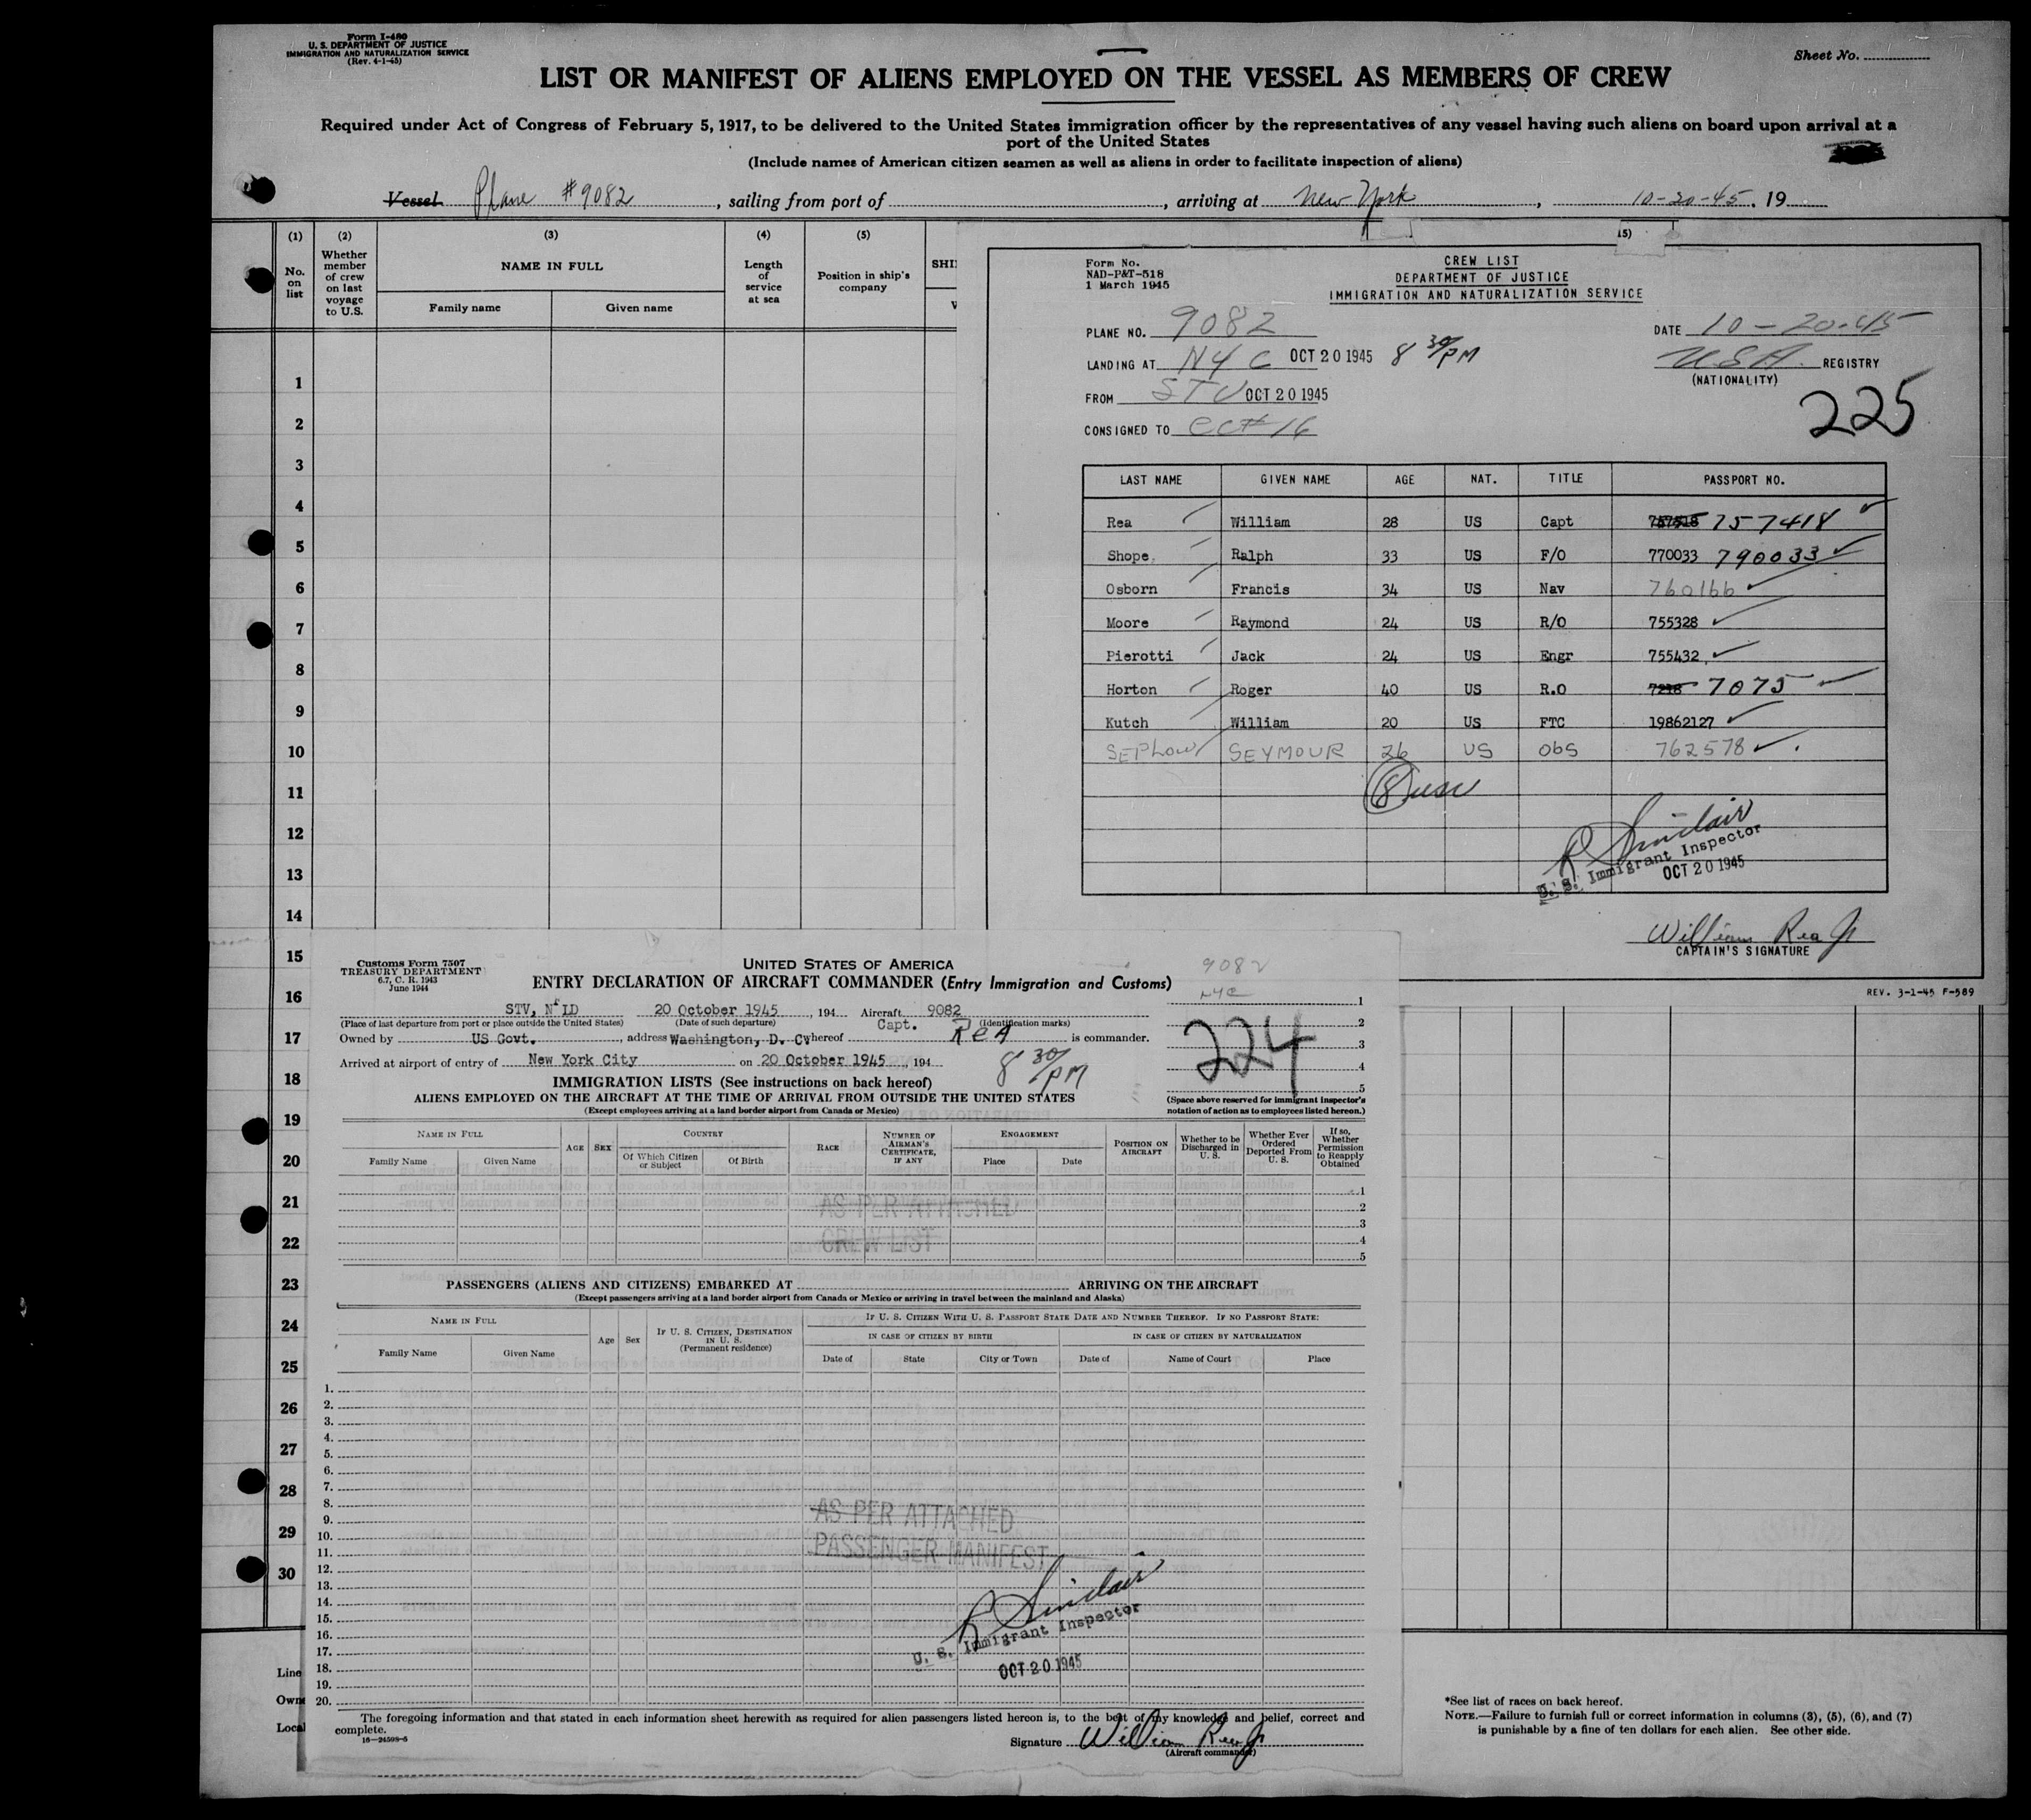 Form I-480
U. S. DEPARTMENT OF JUSTICE
IMMIGRATION AND NATURALIZATION SERVICE
(Rev. 4-1-45)
Sheet No.
LIST OR MANIFEST OF ALIENS EMPLOYED ON THE VESSEL AS MEMBERS OF CREW
Required under Act of Congress of February 5, 1917, to be delivered to the United States immigration officer by the representatives of any vessel having such aliens on board upon arrival at a
port of the United States
(Include names of American citizen seamen as well as aliens in order to facilitate inspection of aliens)
Vessel Plane #9082, sailing from port of , arriving at New York, 10-20-45, 19
(1) (2) (3) (4) (5) 15)
No. on list
Whether member of crew on last voyage to U.S.
NAME IN FULL
Family name Given name
Length of service at sea
Position in ship's company
SHI
1
2
3
4
5
6
7
8
9
10
11
12
13
14
15
16
17
18
19
20
21
22
23
24
25
26
27
28
29
30
Line
Own
Local
Form No.
NAD-P&T-518
1 March 1945
CREW LIST
DEPARTMENT OF JUSTICE
IMMIGRATION AND NATURALIZATION SERVICE
PLANE NO. 9082 DATE 10-20-45
LANDING AT NYC OCT 20 1945 8 30/PM USA REGISTRY
(NATIONALITY)
FROM STV OCT 20 1945 225
CONSIGNED TO
LAST NAME GIVEN NAME AGE NAT. TITLE PASSPORT NO.
Rea William 28 US Capt 757418
Shope Ralph 33 US F/O 770033 790033
Osborn Francis 34 US Nav 760166
Moore Raymond 24 US R/O 755328
Pierotti Jack 24 US Engr 755432
Horton Roger 40 US R.O 7075
Kutch William 20 US FTC 19862127
SEPLOW SEYMOUR 26 US Obs 762578
8 usc
R Sinclair
U. S. Immigrant Inspector
OCT 20 1945
William Rea Jr
CAPTAIN'S SIGNATURE
REV. 3-1-45 F-589
Customs Form 7507
TREASURY DEPARTMENT
6.7, C. R. 1943
June 1944
UNITED STATES OF AMERICA
ENTRY DECLARATION OF AIRCRAFT COMMANDER (Entry Immigration and Customs)
9082
NYC
STV, N'LD 20 October 1945, 194 Aircraft 9082
(Place of last departure from port or place outside the United States) (Date of such departure) (Identification marks)
Owned by US Govt., address Washington, D. C. whereof Capt. ReA is commander.
Arrived at airport of entry of New York City on 20 October 1945, 194 8 30/PM
224
1
2
3
4
5
IMMIGRATION LISTS (See instructions on back hereof)
ALIENS EMPLOYED ON THE AIRCRAFT AT THE TIME OF ARRIVAL FROM OUTSIDE THE UNITED STATES
(Except employees arriving at a land border airport from Canada or Mexico)
(Space above reserved for immigrant inspector's
notation of action as to employees listed hereon.)
NAME IN FULL
Family Name Given Name
AGE SEX
COUNTRY
Of Which Citizen or Subject Of Birth
RACE
NUMBER OF AIRMAN'S CERTIFICATE, IF ANY
ENGAGEMENT
Place Date
POSITION ON AIRCRAFT
Whether to be Discharged in U. S.
Whether Ever Ordered Deported From U. S.
If so, Whether Permission to Reapply Obtained
1
2
3
4
5
AS PER ATTACHED
CREW LIST
PASSENGERS (ALIENS AND CITIZENS) EMBARKED AT ARRIVING ON THE AIRCRAFT
(Except passengers arriving at a land border airport from Canada or Mexico or arriving in travel between the mainland and Alaska)
NAME IN FULL
Family Name Given Name
Age Sex
IF U. S. CITIZEN, DESTINATION IN U. S.
(Permanent residence)
IF U. S. CITIZEN WITH U. S. PASSPORT STATE DATE AND NUMBER THEREOF. IF NO PASSPORT STATE:
IN CASE OF CITIZEN BY BIRTH IN CASE OF CITIZEN BY NATURALIZATION
Date of State City or Town Date of Name of Court Place
1.
2.
3.
4.
5.
6.
7.
8.
9.
10.
11.
12.
13.
14.
15.
16.
17.
18.
19.
20.
AS PER ATTACHED
PASSENGER MANIFEST
R Sinclair
U. S. Immigrant Inspector
OCT 20 1945
The foregoing information and that stated in each information sheet herewith as required for alien passengers listed hereon is, to the best of my knowledge and belief, correct and
complete.
16—24598-5
Signature William Rea Jr
(Aircraft commander)
*See list of races on back hereof.
NOTE.—Failure to furnish full or correct information in columns (3), (5), (6), and (7)
is punishable by a fine of ten dollars for each alien. See other side.